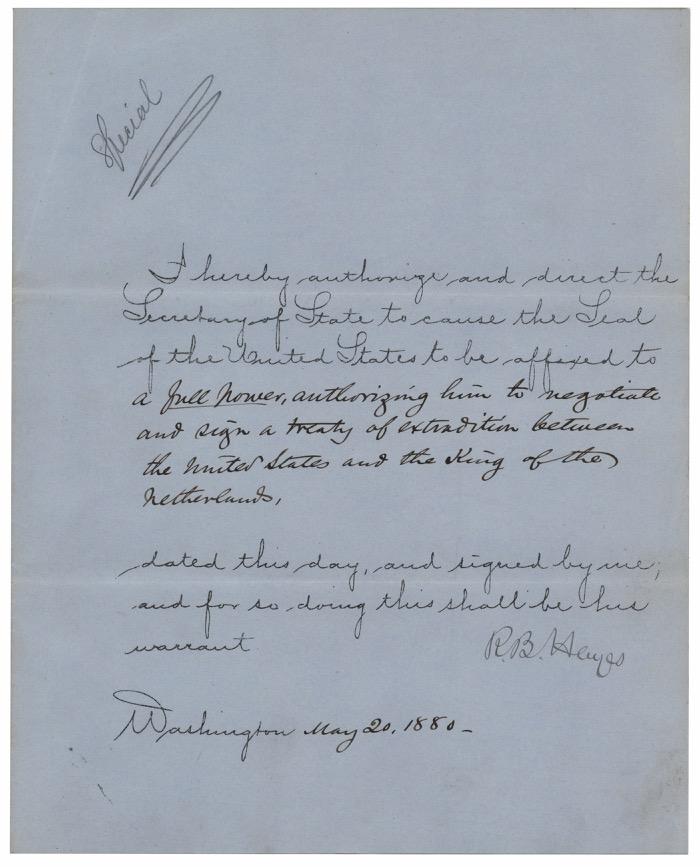 Special
I hereby authorize and direct the
Secretary of State to cause the Seal
of the United States to be affixed to
a full Power, authorizing him to negotiate
and sign a treaty of extradition between
the United States and the King of the
Netherlands,
dated this day, and signed by me;
and for so doing this shall be his
warrant
R.B. Hayes
Washington May 20, 1880-